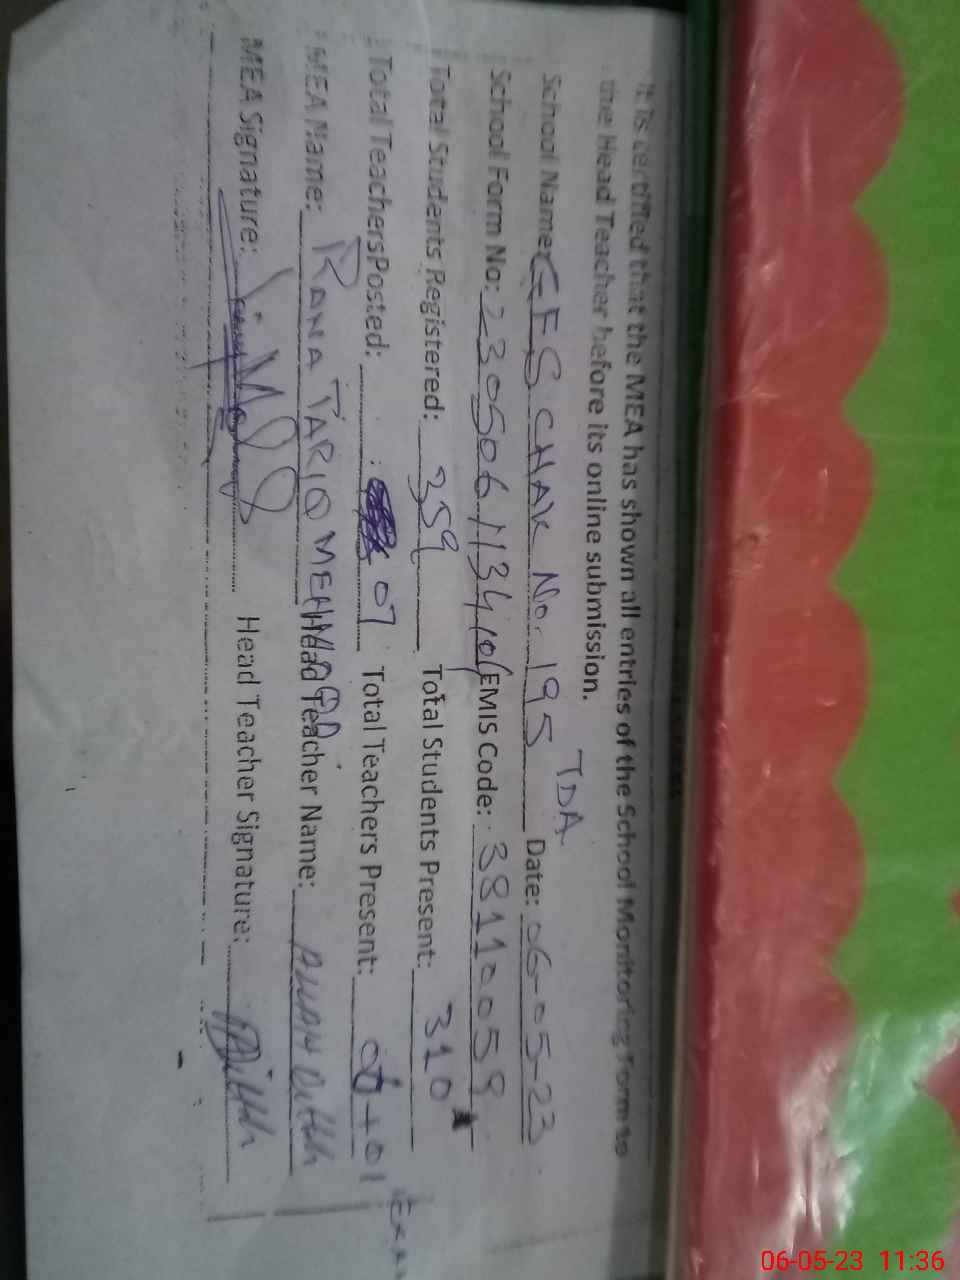 It is certified that the MEA has shown all entries of the School Monitoring Form to
the Head Teacher before its online submission.
TDA
School Name: GES CHAK No. 195 Date: 06-05-23
School Form No: EMIS Code: 38110059
Total Students Registered: 359 Total Students Present: 310
Total TeachersPosted: 07 Total Teachers Present: + 01
MEA Name: RANA TARIQ MEHMOOD Head Teacher Name: Ditth
MEA Signature: Head Teacher Signature:
06-05-23 11:36